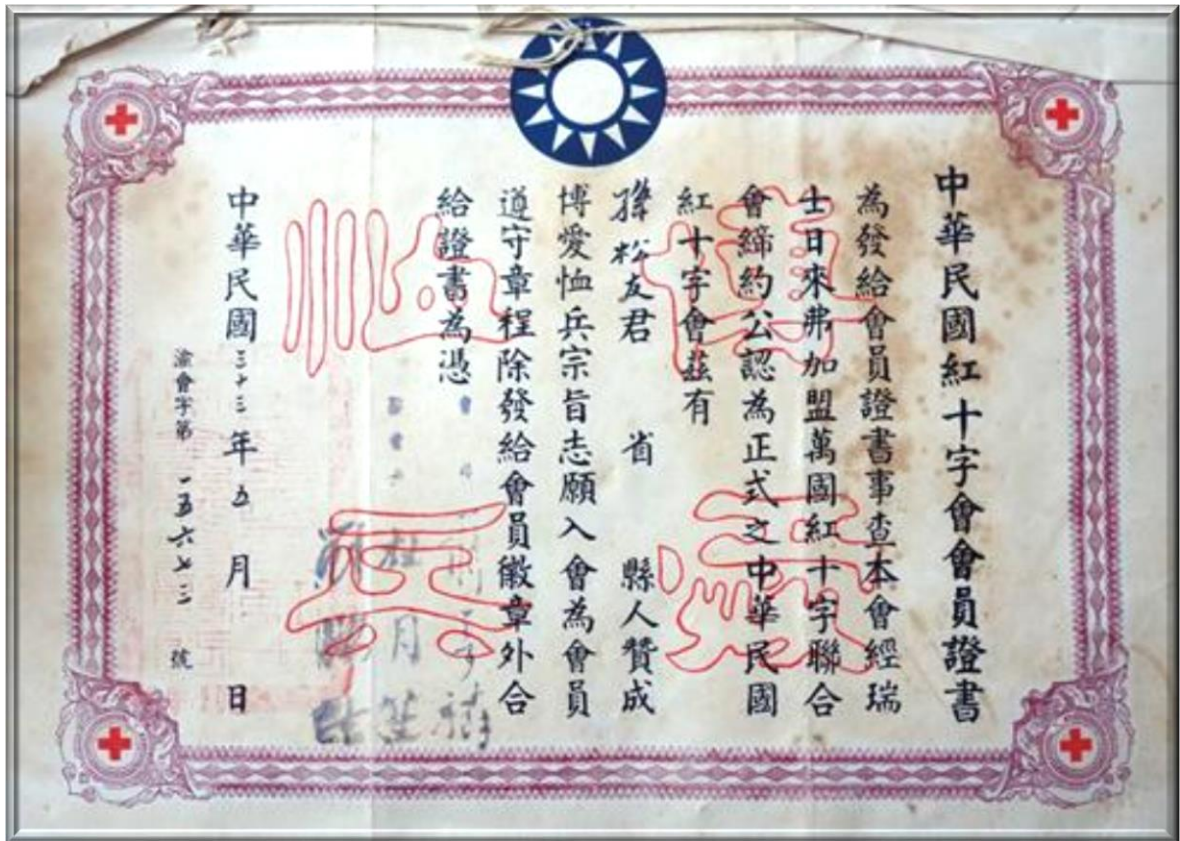 中華民國紅十字會會員證書
為發給會員證書事查本會經瑞
士日來弗加盟萬國紅十字聯合
會締約公認為正式之中華民國
紅十字會茲有
孫松友君 省 縣人贊成
博愛恤兵宗旨志願入會為會員
遵守章程除發給會員徽章外合
給證書為憑
博愛恤兵
會
中華民國三十三年五月 日
渝會字第 一五六七三 號